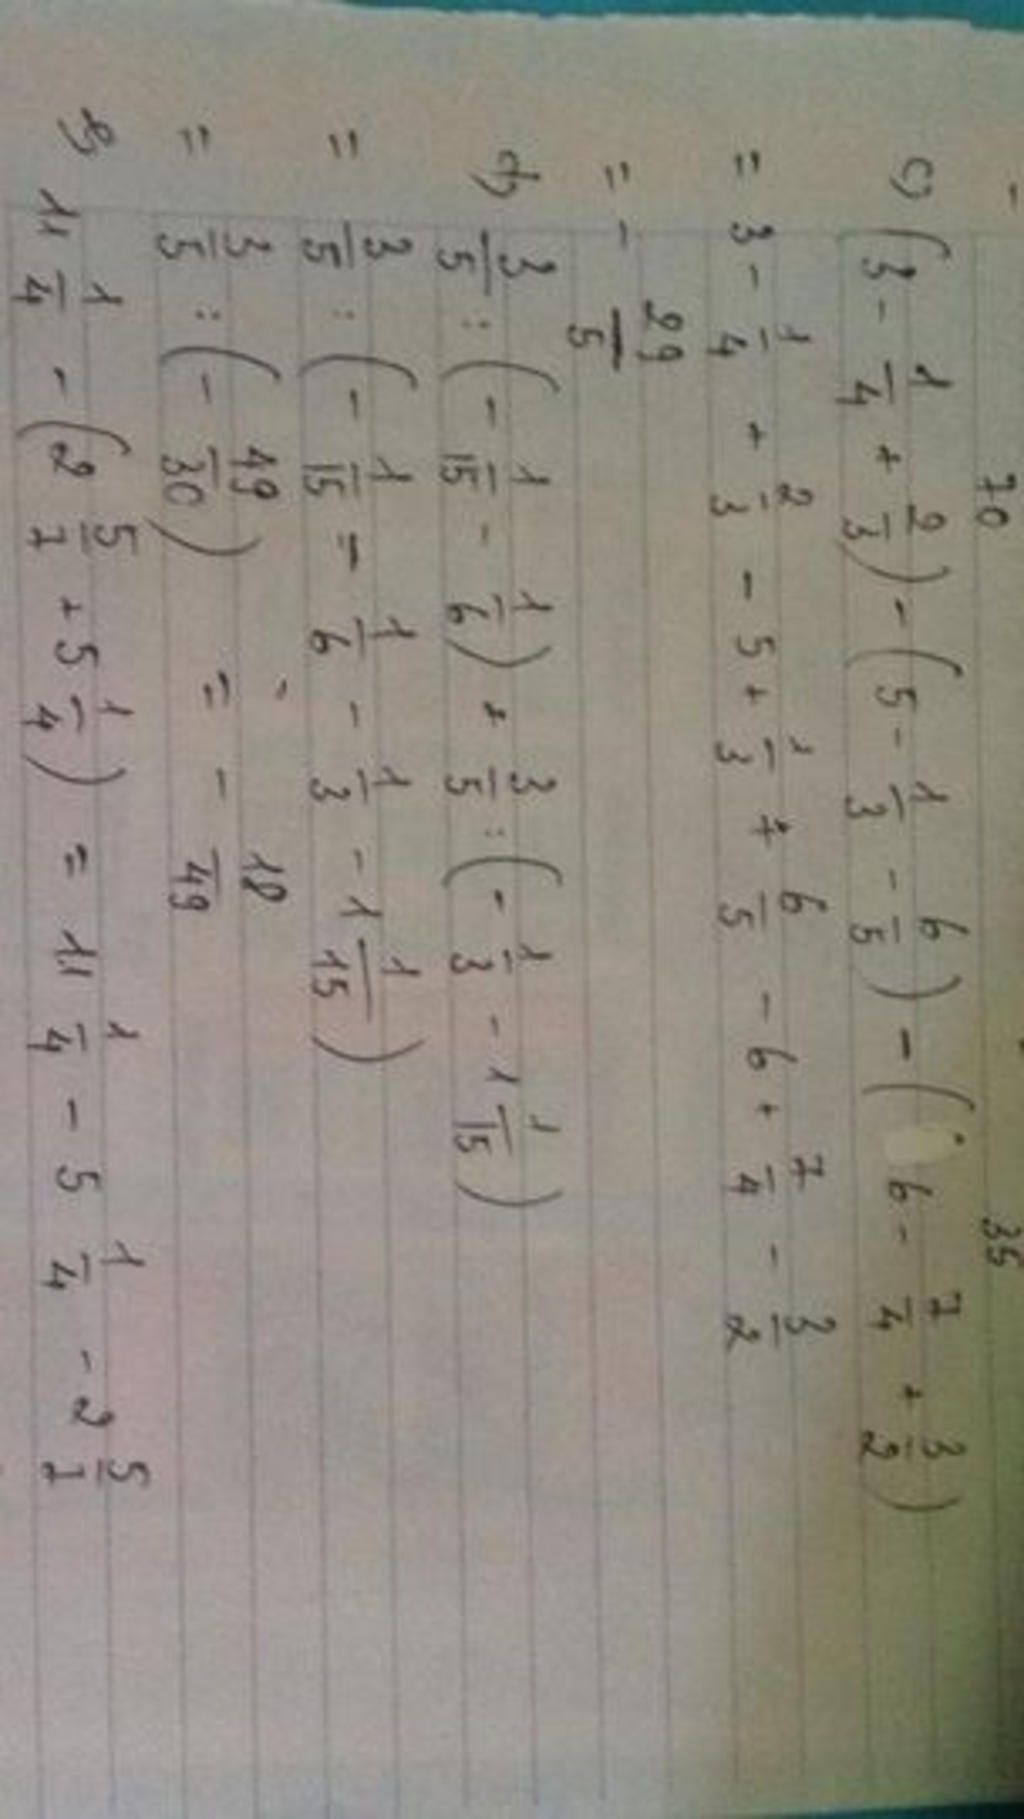 - 70 35
c) (3 - 1/4 + 2/3) - (5 - 1/3 - 6/5) - (6 - 7/4 + 3/2)
= 3 - 1/4 + 2/3 - 5 + 1/3 + 6/5 - 6 + 7/4 - 3/2
= - 29/5
d) 3/5 : (- 1/15 - 1/6) + 3/5 : (- 1/3 - 1 1/15)
= 3/5 : (- 1/15 - 1/6 - 1/3 - 1 1/15)
= 3/5 : (- 49/30) = - 18/49
11 1/4 - (2 5/7 + 5 1/4) = 11 1/4 - 5 1/4 - 2 5/7